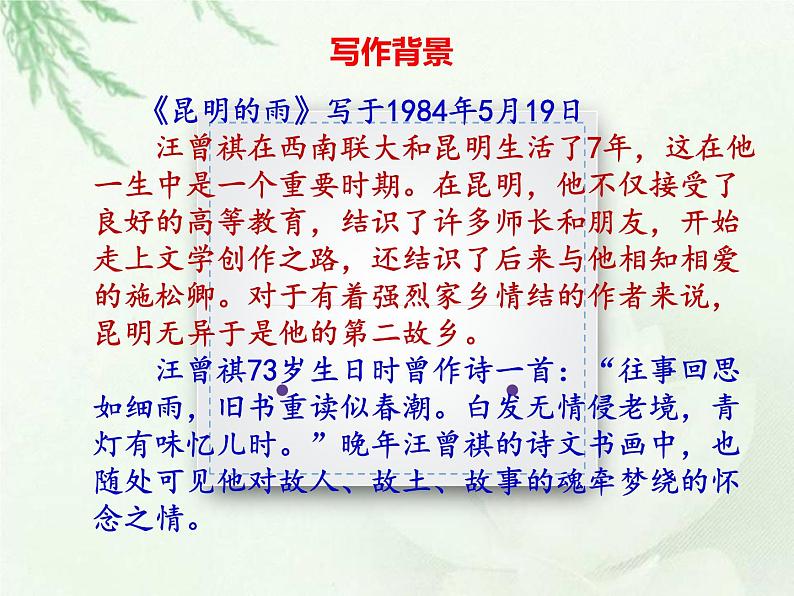 写作背景
《昆明的雨》写于1984年5月19日
汪曾祺在西南联大和昆明生活了7年，这在他
一生中是一个重要时期。在昆明，他不仅接受了
良好的高等教育，结识了许多师长和朋友，开始
走上文学创作之路，还结识了后来与他相知相爱
的施松卿。对于有着强烈家乡情结的作者来说，
昆明无异于是他的第二故乡。
汪曾祺73岁生日时曾作诗一首：“往事回思
如细雨，旧书重读似春潮。白发无情侵老境，青
灯有味忆儿时。”晚年汪曾祺的诗文书画中，也
随处可见他对故人、故土、故事的魂牵梦绕的怀
念之情。